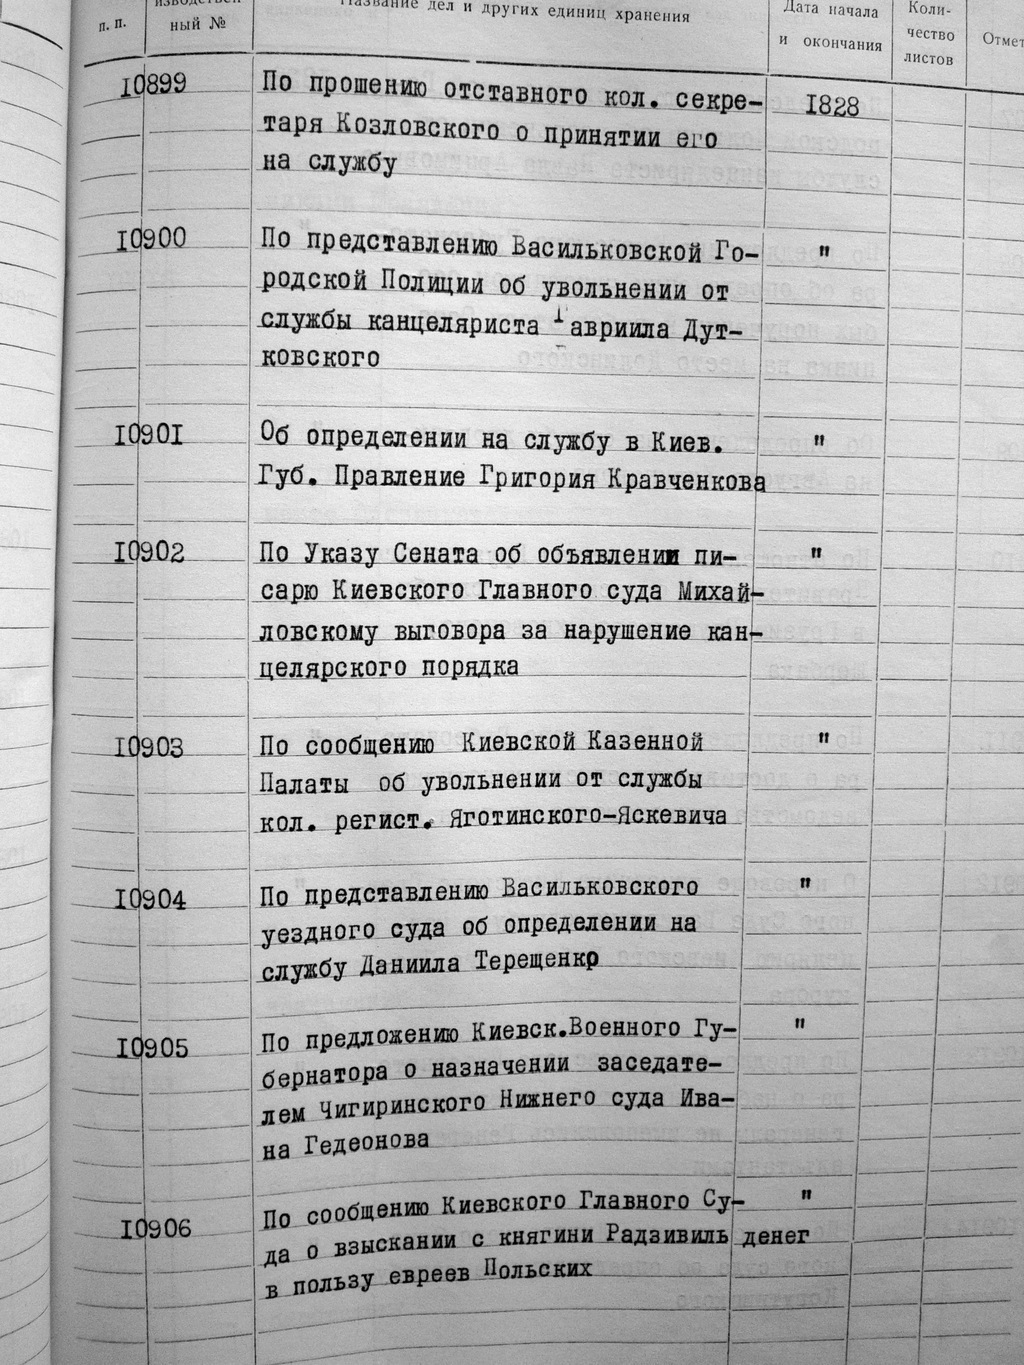 п. п.
ный №
Название дел и других единиц хранения
Дата начала
и окончания
Коли-
чество
листов
10899
По прошению отставного кол. секре-
1828
таря Козловского о принятии его
на службу
10900
По представлению Васильковской Го-
"
родской Полиции об увольнении от
службы канцеляриста Гавриила Дут-
ковского
10901
Об определении на службу в Киев.
"
Губ. Правление Григория Кравченкова
10902
По Указу Сената об объявлении пи-
"
сарю Киевского Главного суда Михай-
ловскому выговора за нарушение кан-
целярского порядка
10903
По сообщению Киевской Казенной
"
Палаты об увольнении от службы
кол. регист. Яготинского-Яскевича
10904
По представлению Васильковского
"
уездного суда об определении на
службу Даниила Терещенко
10905
По предложению Киевск.Военного Гу-
"
бернатора о назначении заседате-
лем Чигиринского Нижнего суда Ива-
на Гедеонова
10906
По сообщению Киевского Главного Су-
"
да о взыскании с княгини Радзивиль денег
в пользу евреев Польских